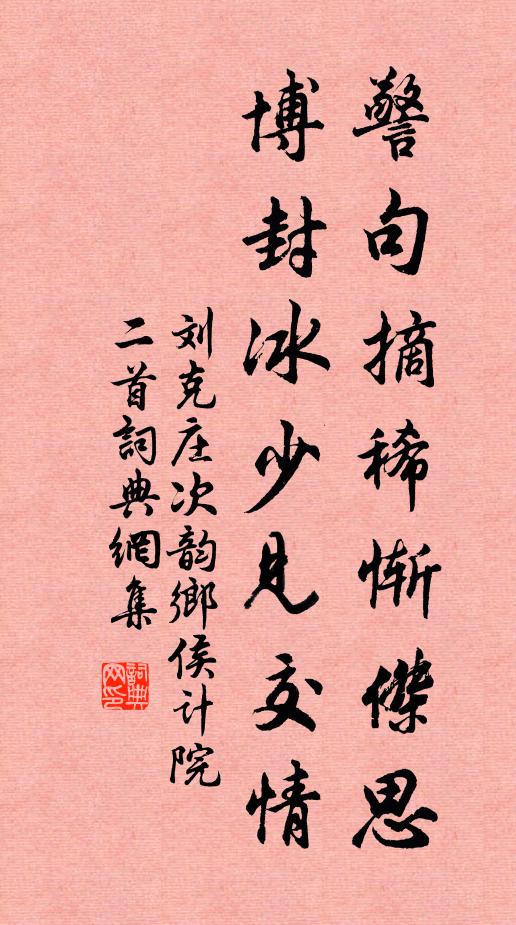 警句摘稀惭傑思
博封冰少見交情
刘克庄次韵鄉侯计院
二首詞典網集
詞典網印